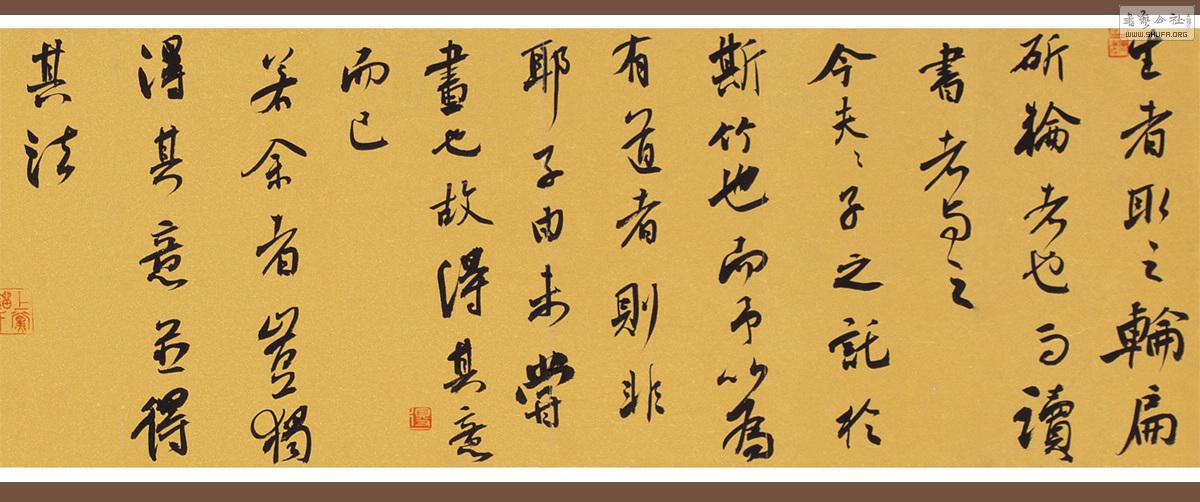 生者取之輪扁
斫輪者也而讀
書者与之
今夫〻子之託於
斯竹也而予以為
有道者則非
耶子由未嘗
畫也故得其意
而已
若余者豈獨
得其意並得
其法
WWW.SHUFA.ORG